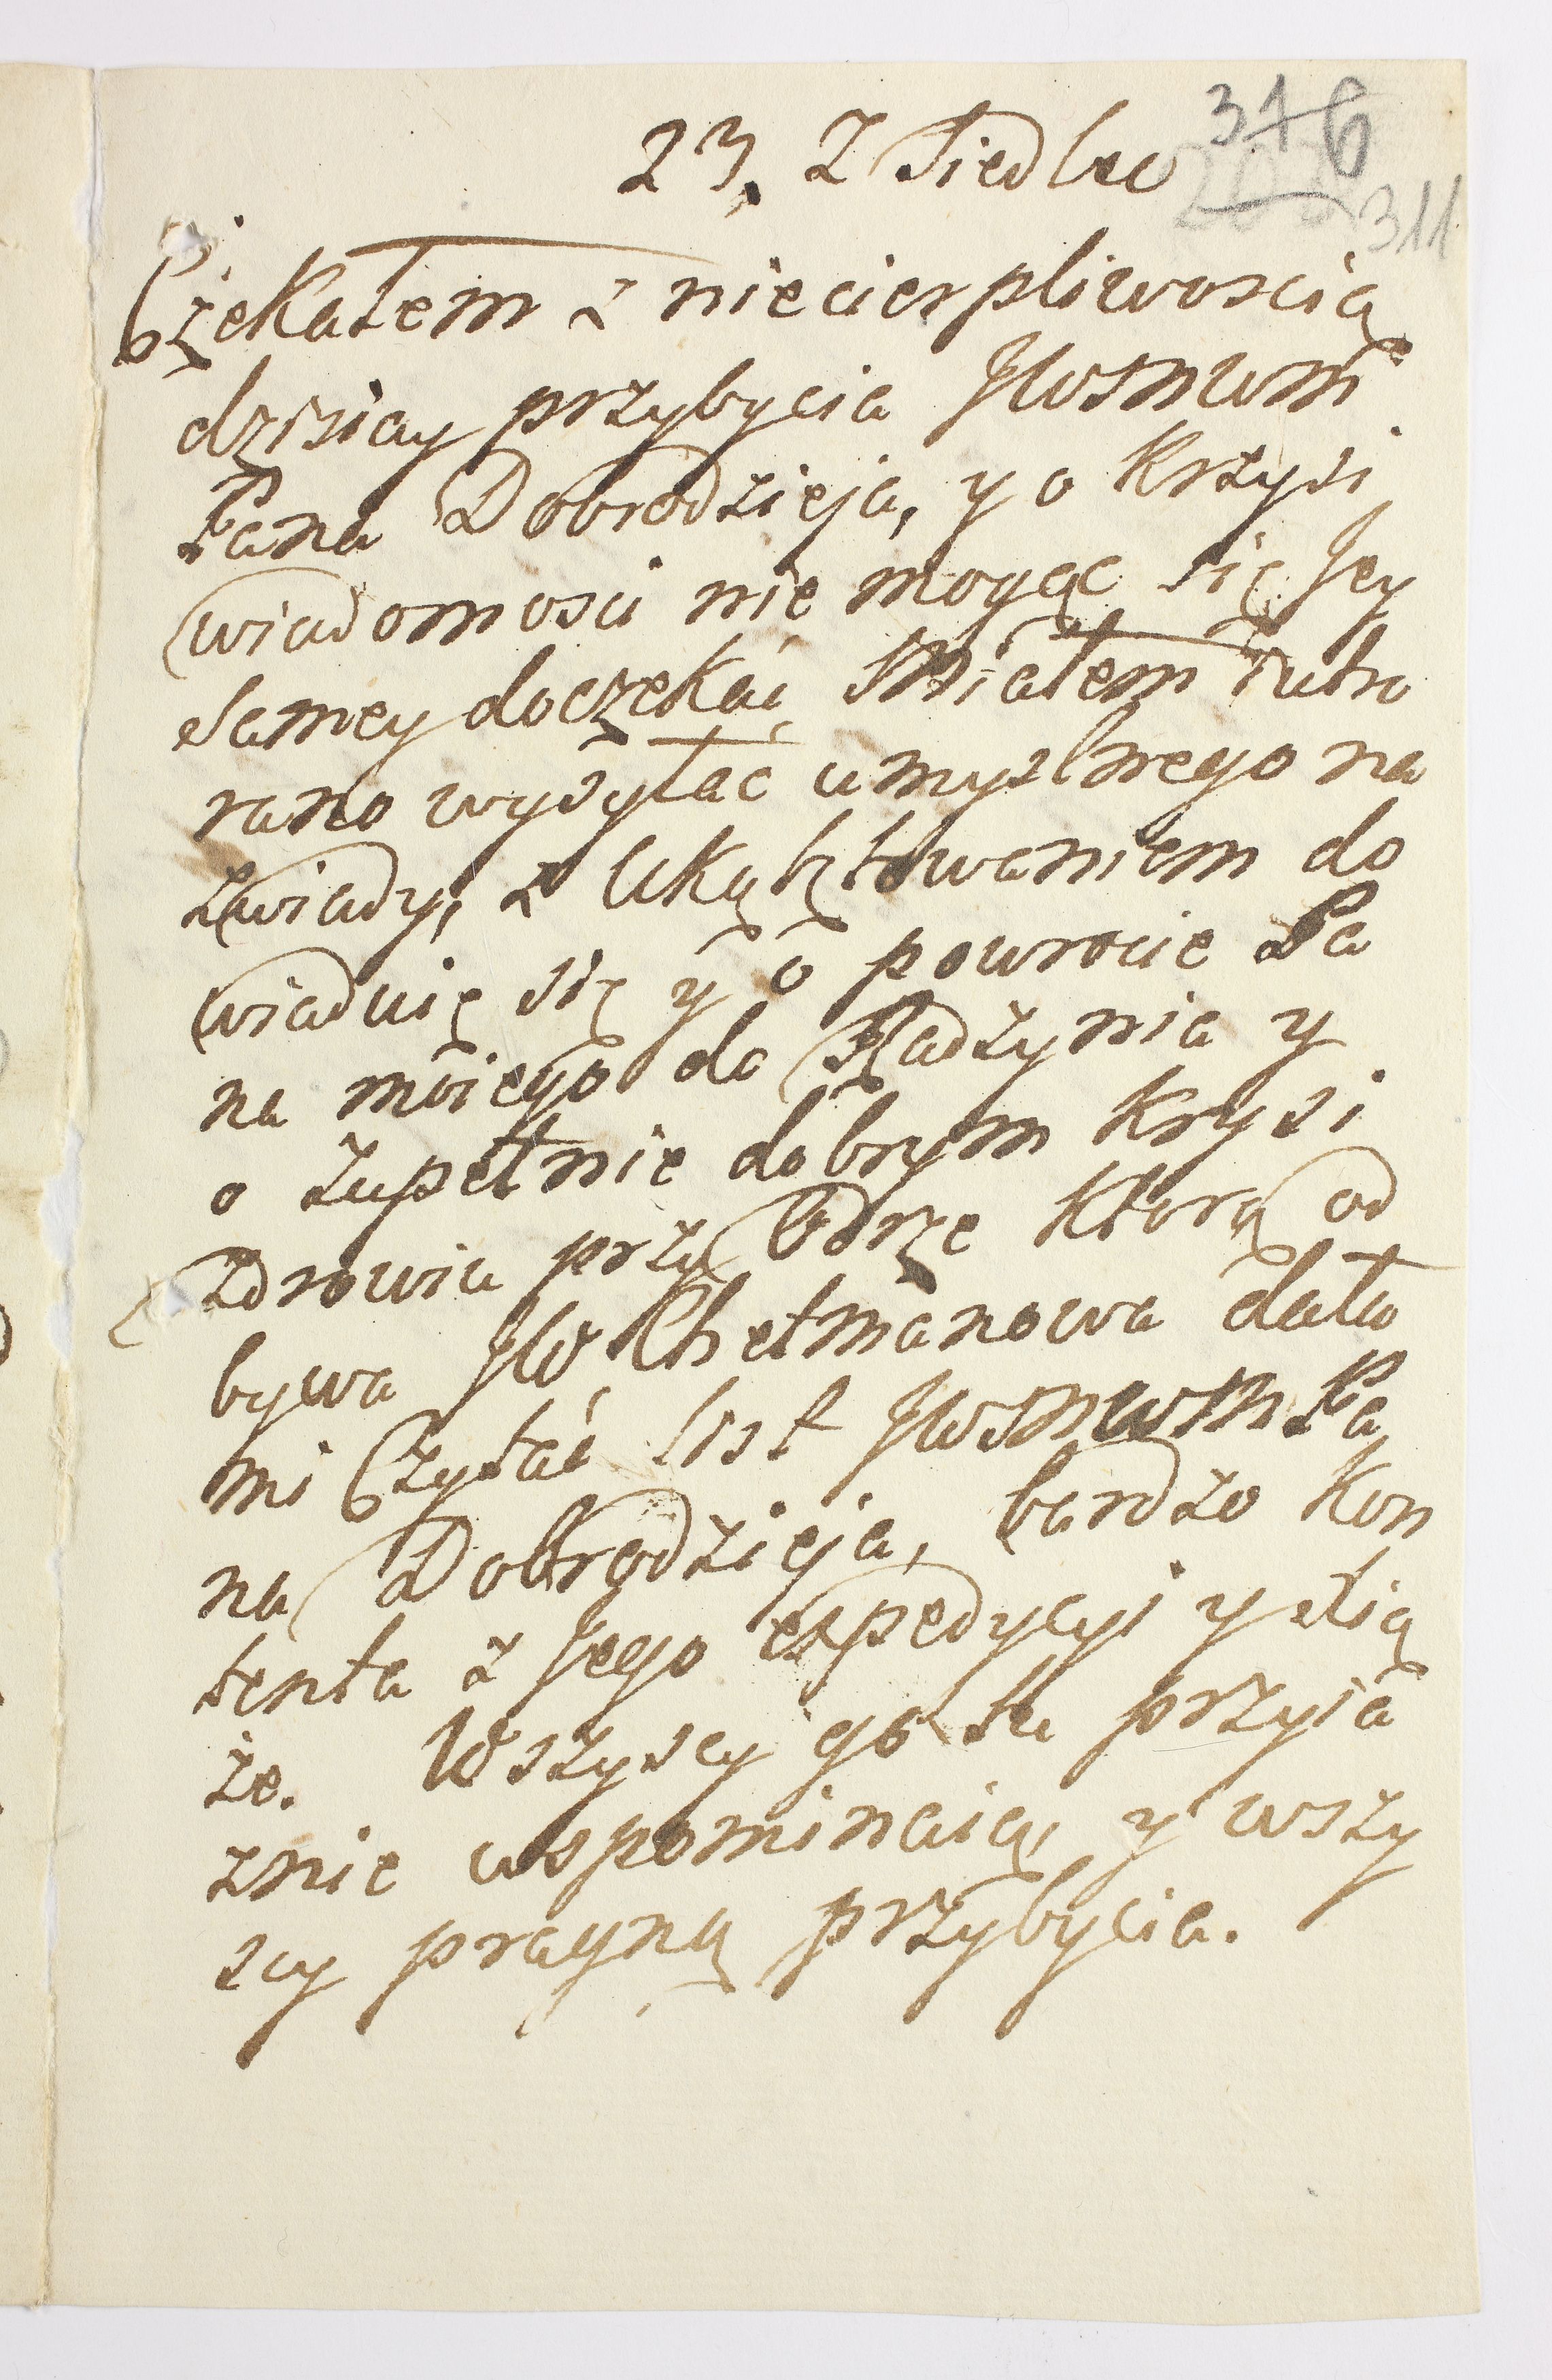 23. Z Siedlec 316
311
Czekałem z niecierpliwoscią
dzisiay przybycia JWSMWM
Pana Dobrodzieja, y o Krzysi
wiadomosci nie mogąc się Jey
Samey doczekać Miałem iutro
rano wysyłać umyslnego na
zwiady, z
wiaduię się y o powrocie Pa
na moiego do Radzynia y
o zupełnie dobrym Krysi
zdrowia przy Odrze którą od
bywa JW Chetmanowa dała
mi Czytać list JWSMWM Pa
na Dobrodzieja, bardzo kon
tenta z Jego expedycyi y
że. Wszyscy go tu przyia
znie wspominaią y wszy
scy pragną przybycia.